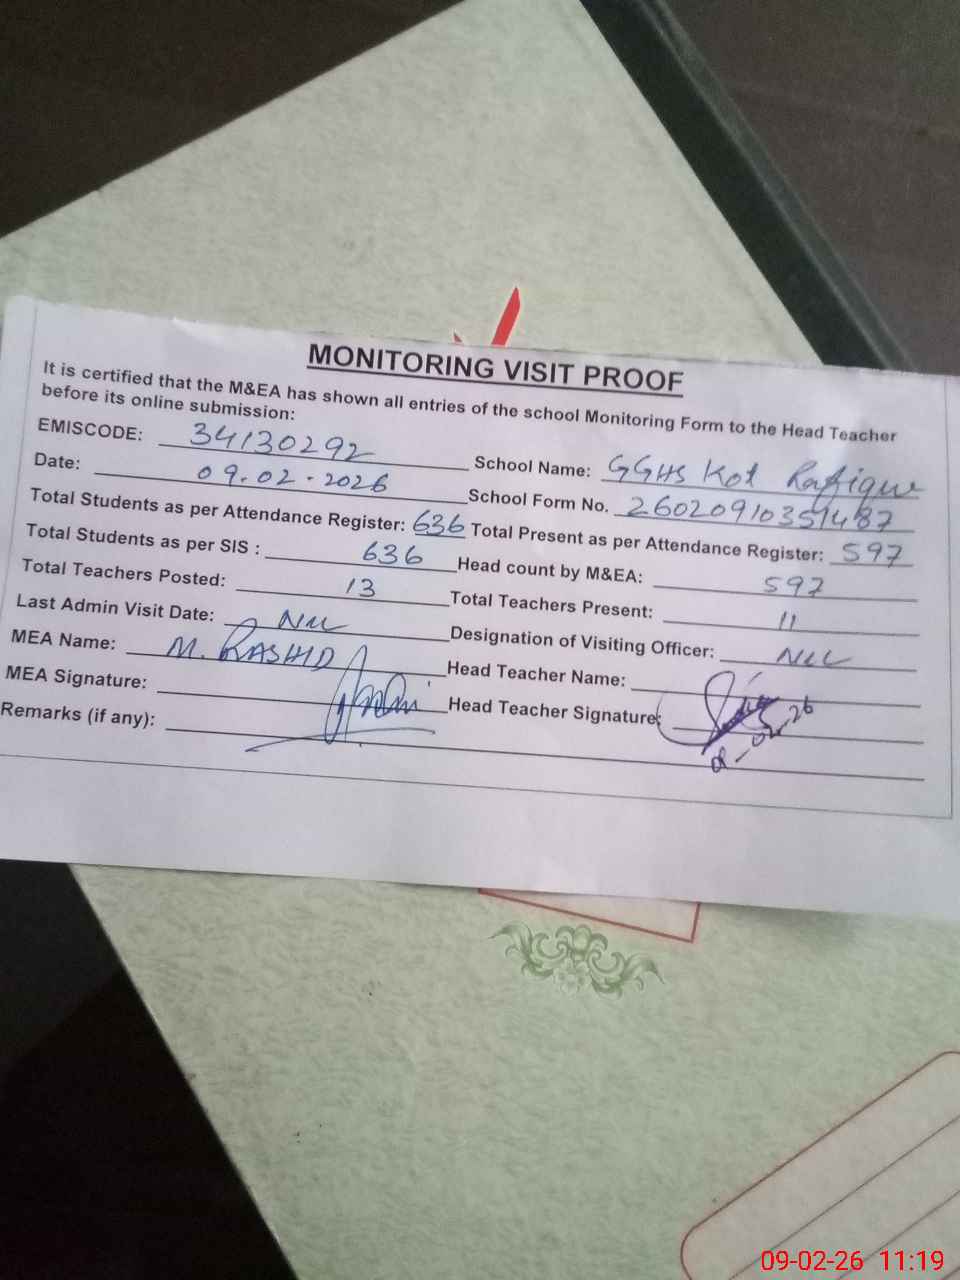 MONITORING VISIT PROOF
It is certified that the M&EA has shown all entries of the school Monitoring Form to the Head Teacher
before its online submission:
EMISCODE: 34130292 School Name: GGHS Kot Rafique
Date: 09.02.2026 School Form No. 26020910351487
Total Students as per Attendance Register: 636 Total Present as per Attendance Register: 597
Total Students as per SIS : 636 Head count by M&EA: 597
Total Teachers Posted: 13 Total Teachers Present: 11
Last Admin Visit Date: Nil Designation of Visiting Officer: Nil
MEA Name: M. RASHID Head Teacher Name:
MEA Signature: Head Teacher Signature:
Remarks (if any):
09-02-26 11:19